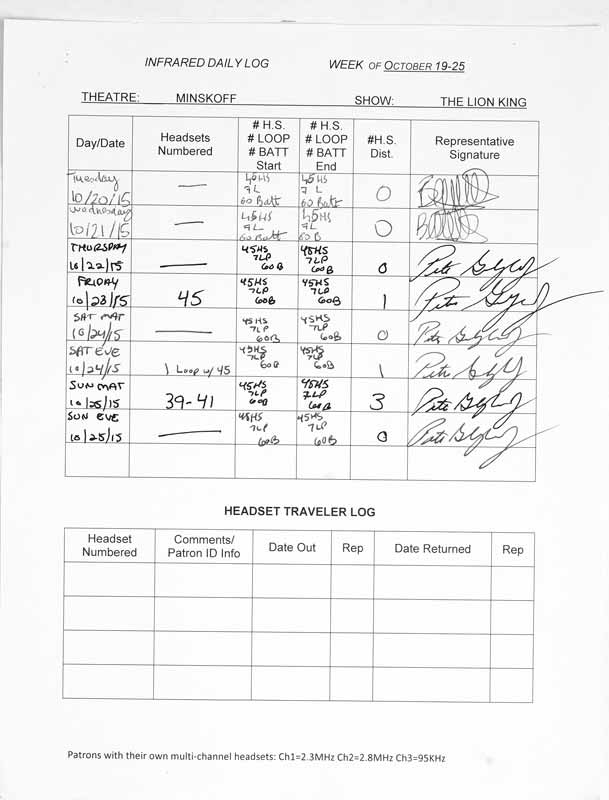 INFRARED DAILY LOG WEEK OF OCTOBER 19-25
THEATRE: MINSKOFF SHOW: THE LION KING
Day/Date Headsets Numbered # H.S. # LOOP # BATT Start # H.S. # LOOP # BATT End #H.S. Dist. Representative Signature
Tuesday 10/20/15 — 45HS 7L 60 Batt 45HS 7 L 60 Batt 0
Wednesday 10/21/15 — 45HS 7L 60 Batt 45HS 7L 60 B 0
THURSDAY 10/22/15 — 45HS 7LP 60B 45HS 7LP 60B 0
FRIDAY 10/23/15 45 45HS 7LP 60B 45HS 7LP 60B 1
SAT MAT 10/24/15 — 45HS 7LP 60B 45HS 7LP 60B 0
SAT EVE 10/24/15 1 Loop w/ 45 45HS 7LP 60B 45HS 7LP 60B 1
SUN MAT 10/25/15 39-41 45HS 7LP 60B 45HS 7LP 60B 3
SUN EVE 10/25/15 — 45HS 7LP 60B 45HS 7LP 60B 0
HEADSET TRAVELER LOG
Headset Numbered Comments/ Patron ID Info Date Out Rep Date Returned Rep
Patrons with their own multi-channel headsets: Ch1=2.3MHz Ch2=2.8MHz Ch3=95KHz